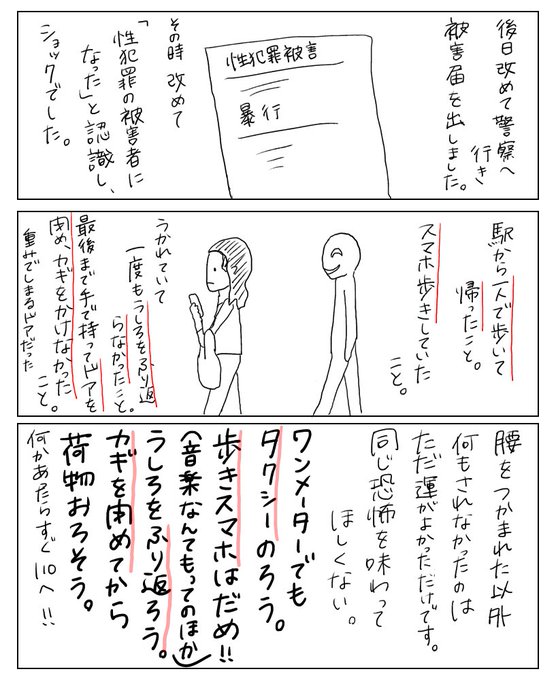 後日改めて警察へ
行き
被害届を出しました。
性犯罪被害
暴行
その時改めて
「性犯罪の被害者に
なった」と認識し、
ショックでした。
駅から一人で歩いて
帰ったこと。
スマホ歩きしていた
こと。
うかれていて
一度もうしろをふり返
らなかったこと。
最後まで手で持ってドアを
閉め、カギをかけなかった
こと。
重みでしまるドアだった
腰をつかまれた以外
何もされなかったのは
ただ運がよかっただけです。
同じ恐怖を味わって
ほしくない。
ワンメーターでも
タクシーのろう。
歩きスマホはだめ!!
(音楽なんてもってのほか)
うしろをふり返ろう。
カギを閉めてから
荷物おろそう。
何かあったらすぐ110へ!!